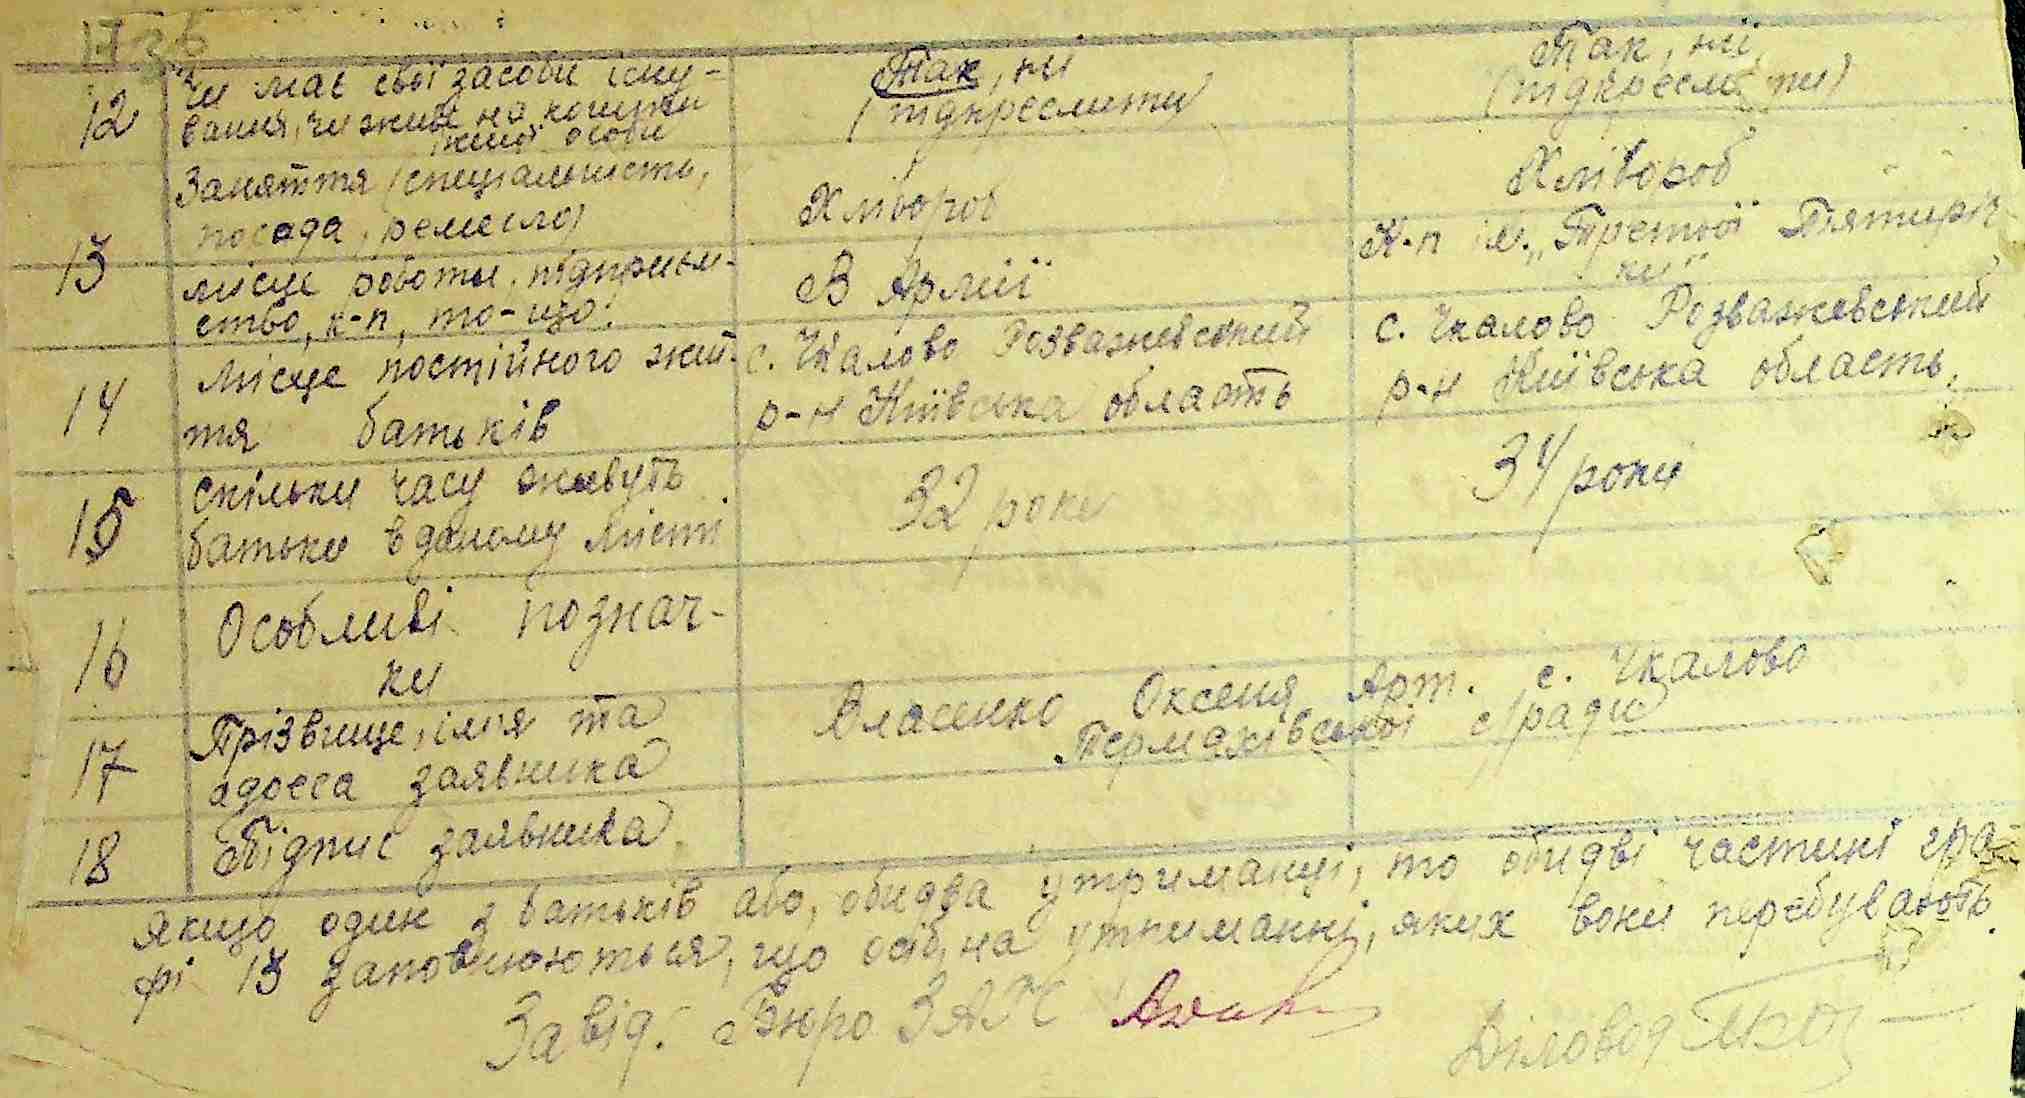 12
Чи має свої засоби існу-
вання, чи живе на кошти
іншої особи
Так, ні
(підкреслити)
Так, ні
(підкреслити)
13
Заняття (спеціальність,
посада, ремесло)
Хлібороб
Хлібороб
місце роботи, підприєм-
ство, к-п, то-що.
В Армії
К-п ім. „Третьої Пятиріч-
ки"
14
Місце постійного жит-
тя батьків
с. Чкалово Розважевський
р-н Київська область
с. Чкалово Розважевський
р-н Київська область.
15
Скільки часу живуть
батьки в даному місті
32 роки
34 роки
16
Особливі познач-
ки
17
Прізвище, імя та
адреса заявника
Власенко Оксеня Арт. с. Чкалово
Термахівської с/ради
18
Підпис заявника
Якщо один з батьків або, обидва утриманці, то обидві частині гра-
фі 13 заповнюються, що осіб, на утриманні, яких вони перебувають.
Завід. Бюро ЗАГС
Діловод